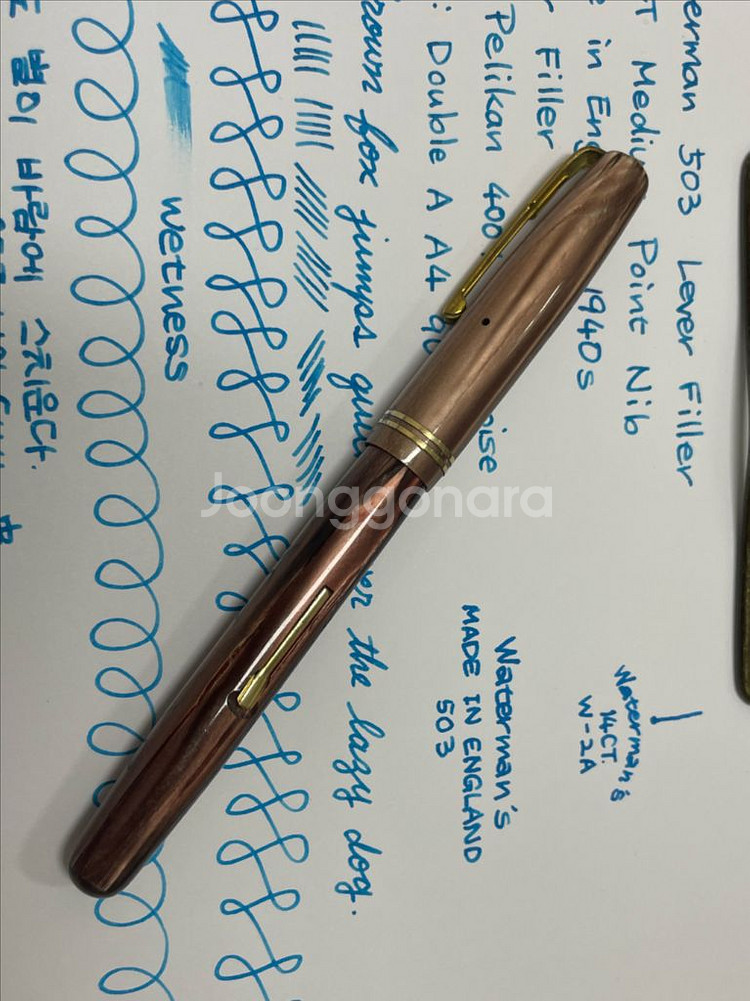 erman 503 Lever Filler
T Mediu Point Nib
in Eng 1940s
Filler
Pelikan 400
: Double A A4
rown fox jumps the lazy dog.
Waterman's
14CT
W-2A
Waterman's
MADE IN ENGLAND
503
wetness
별이 바람에 스치운다.
Joonggonara